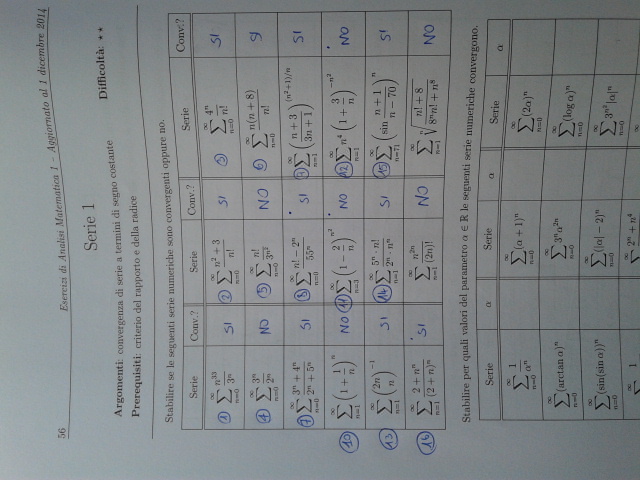 56
Esercizi di Analisi Matematica 1 – Aggiornato al 1 dicembre 2014
Serie 1
Difficoltà: **
Argomenti: convergenza di serie a termini di segno costante
Prerequisiti: criterio del rapporto e della radice
Stabilire se le seguenti serie numeriche sono convergenti oppure no.
Serie Conv.? Serie Conv.? Serie Conv.?
1 ∞∑n=0 n^33/3^n SI 2 ∞∑n=0 (n^2+3)/n! SI 3 ∞∑n=0 4^n/n! SI
4 ∞∑n=0 3^n/2^n NO 5 ∞∑n=0 n!/3^(n^2) NO 6 ∞∑n=0 n(n+8)/n! SI
7 ∞∑n=0 (3^n+4^n)/(2^n+5^n) SI 8 ∞∑n=0 (n!−2^n)/55^n SI ∞∑n=1 ((n+3)/(3n+1))^((n^2+1)/n) SI
10 ∞∑n=1 (1+1/n)^n NO 11 ∞∑n=3 (1−2/n)^(n^2) NO 12 ∞∑n=1 n^4 (1+3/n)^(−n^2) NO
13 ∞∑n=1 (2n n)^(−1) SI 14 ∞∑n=1 5^n·n!/(2^n·n^n) SI 15 ∞∑n=71 (sin (n+1)/(n−70))^n SI
16 ∞∑n=1 (2+n^n)/(2+n)^n SI ∞∑n=1 n^(2n)/(2n)! NO ∞∑n=1 ^n√((n!+8)/(8^n n!+n^8)) NO
Stabilire per quali valori del parametro α ∈ ℝ le seguenti serie numeriche convergono.
Serie α Serie α Serie α
∞∑n=0 1/α^n ∞∑n=0 (α+1)^n ∞∑n=0 (2α)^n
∞∑n=0 (arctan α)^n ∞∑n=0 3^n α^(2n) ∞∑n=0 (log α)^n
∞∑n=0 (sin(sin α))^n ∞∑n=0 (|α|−2)^n ∞∑n=0 3^(n^2)|α|^n